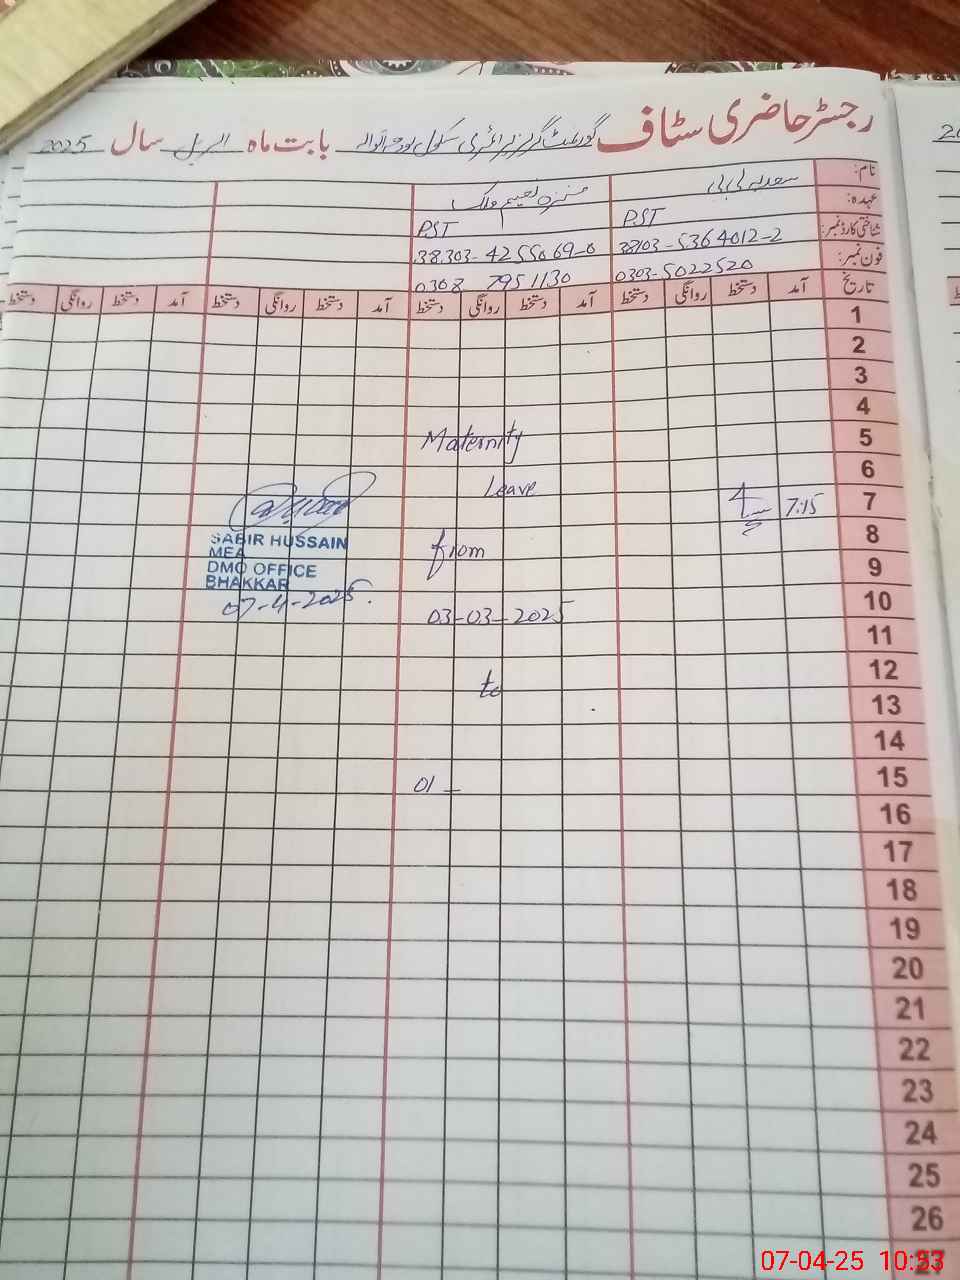 رجسٹر حاضری سٹاف گورنمنٹ گرلز پرائمری سکول بابت ماہ اپریل سال 2025
نام: سعدیہ بی بی منزہ نعیم ملک
عہدہ: PST PST
شناختی کارڈ نمبر: 38103-5364012-2 38303-4255069-0
فون نمبر: 0303-5022520 0308 7951130
تاریخ آمد دستخط روانگی دستخط آمد دستخط روانگی دستخط آمد دستخط روانگی دستخط آمد دستخط روانگی دستخط
1
2
3
4
5
Maternity
6
Leave
7 7:15
8
SABIR HUSSAIN
MEA
DMO OFFICE
BHAKKAR
07-4-2025.
from
9
10
03-03-2025
11
12
to
13
14
15
01 –
16
17
18
19
20
21
22
23
24
25
26
27
07-04-25 10:53